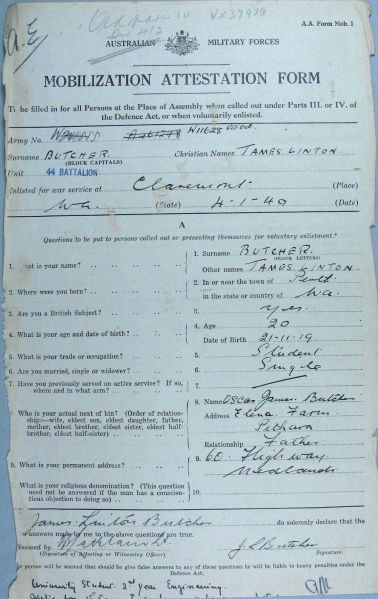 WX37986
A.A. Form Mob. 1
AUSTRALIAN MILITARY FORCES
MOBILIZATION ATTESTATION FORM
To be filled in for all Persons at the Place of Assembly when called out under Parts III. or IV. of
the Defence Act, or when voluntarily enlisted.
Army No. W11628
Surname BUTCHER. Christian Names JAMES LINTON
(BLOCK CAPITALS)
Unit 44 BATTALION
Enlisted for war service at Claremont (Place)
Wa. (State) 4-1-40 (Date)
A
Questions to be put to persons called out or presenting themselves for voluntary enlistment.*
1. What is your name? 1. Surname BUTCHER.
(BLOCK LETTERS)
Other names JAMES LINTON.
2. Where were you born? 2. In or near the town of Perth
in the state or country of Wa.
3. Are you a British Subject? 3. Yes.
4. What is your age and date of birth? 4. Age 20
Date of Birth 21-11-19
5. What is your trade or occupation? 5. Student
6. Are you married, single or widower? 6. Single
7. Have you previously served on active service? If so, 7.
where and in what army?
8. Who is your actual next of kin? (Order of relation- 8. Name Oscar James Butcher
ship:—wife, eldest son, eldest daughter, father, Address Elena Farm
mother, eldest brother, eldest sister, eldest half- Pithara
brother, eldest half-sister) Relationship Father
9. What is your permanent address? 9. 60. Highway
Nedlands
10. What is your religious denomination? (This question 10.
need not be answered if the man has a conscien-
tious objection to doing so)
James Linton Butcher do solemnly declare that the
answers made by me to the above questions are true.
Witnessed by
(Signature of Attesting or Witnessing Officer) J L Butcher
Signature
The person will be warned that should he give false answers to any of these questions he will be liable to heavy penalties under the
Defence Act.
University Student 2nd year Engineering.